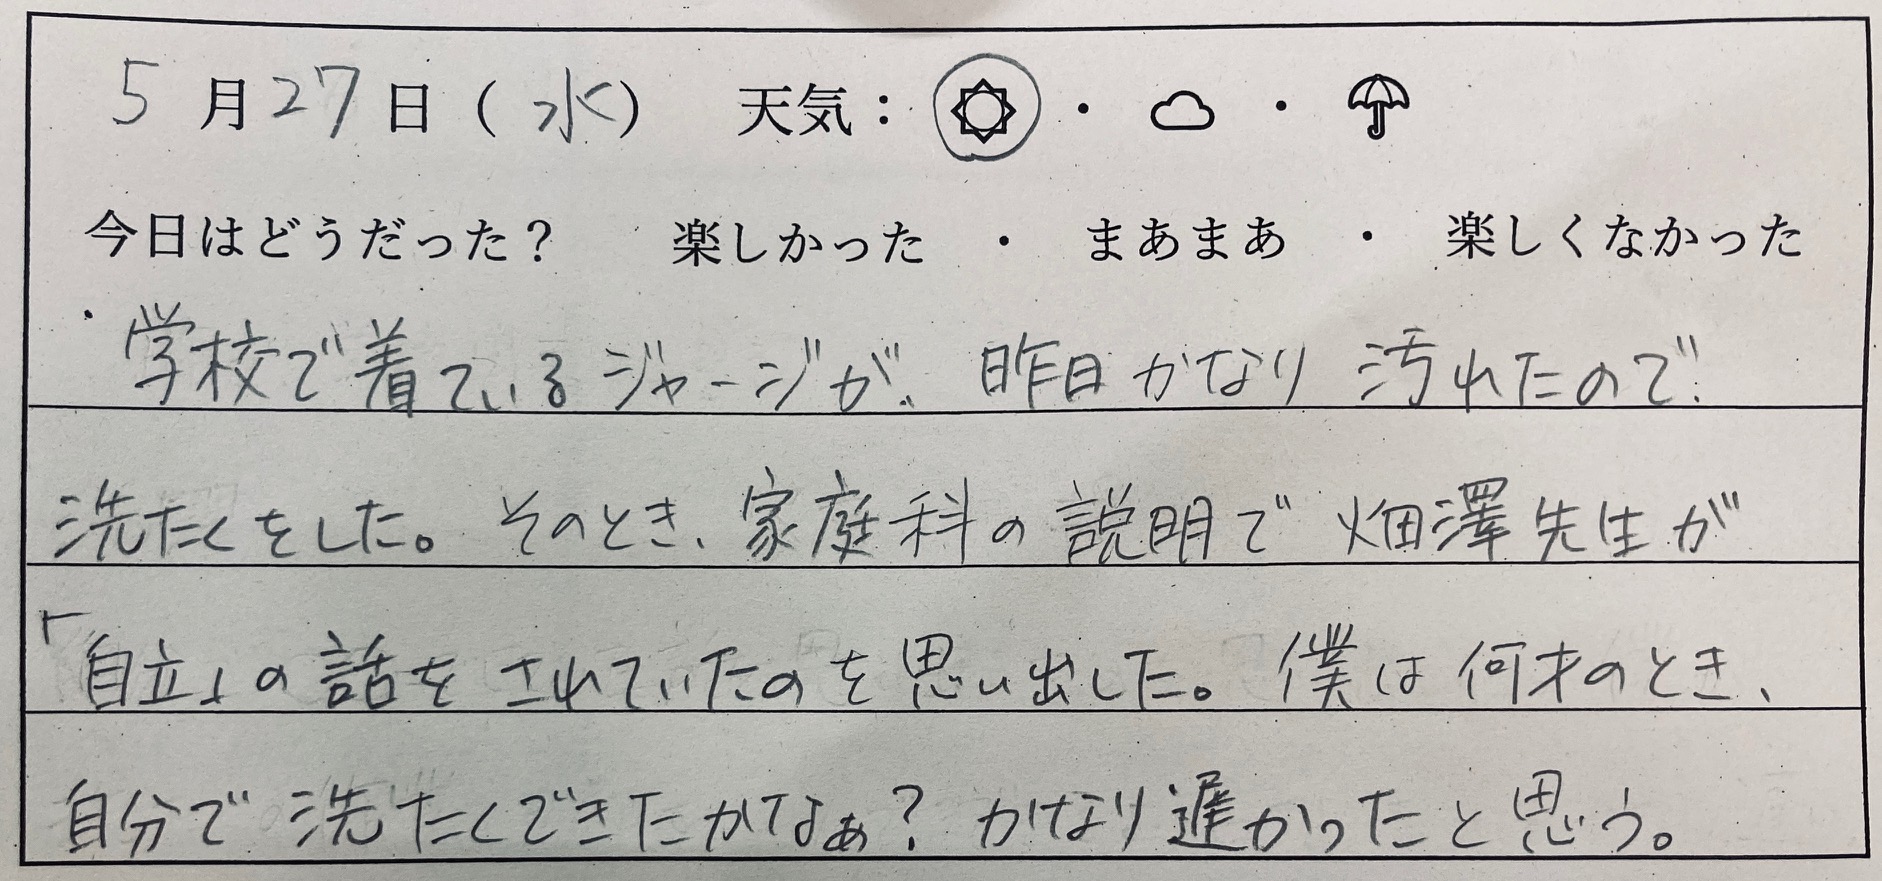 5月27日（水） 天気：・・
今日はどうだった？ 楽しかった ・ まあまあ ・ 楽しくなかった
学校で着ているジャージが、昨日かなり汚れたので
洗たくをした。そのとき、家庭科の説明で畑澤先生が
「自立」の話をされていたのを思い出した。僕は何才のとき、
自分で洗たくできたかなぁ？かなり遅かったと思う。